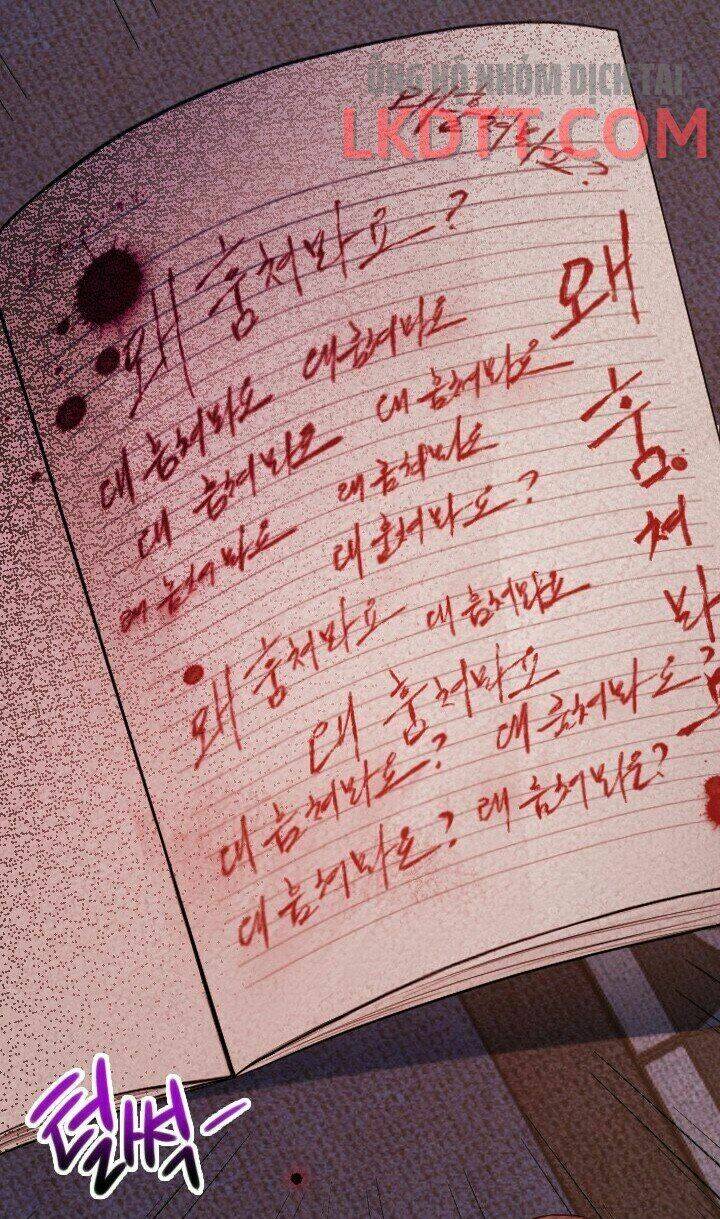 ỦNG HỘ NHÓM DỊCH TẠI
LKDTT.COM
왜 훔쳐봐요?
왜 훔쳐봐요
왜 훔쳐봐요 왜 훔쳐봐요
왜 훔쳐봐요 왜 훔쳐봐요
왜 훔쳐봐요 왜 훔쳐봐요?
왜 훔쳐봐요 왜 훔쳐봐요
왜 훔쳐봐요
왜 훔쳐봐요? 왜 훔쳐봐요?
왜 훔쳐봐요?
왜
훔
쳐
봐
요
털썩